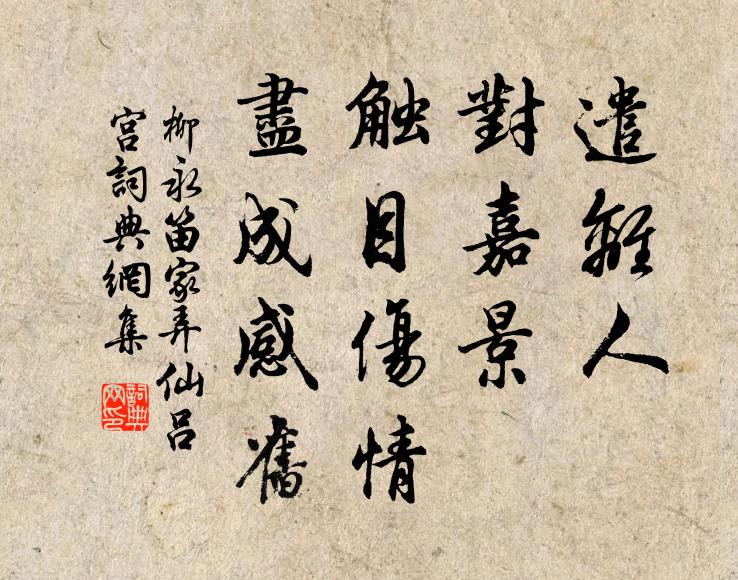 遣離人
對嘉景
觸目傷情
盡成感舊
柳永笛家弄仙呂
宮詞典網集
詞典網印